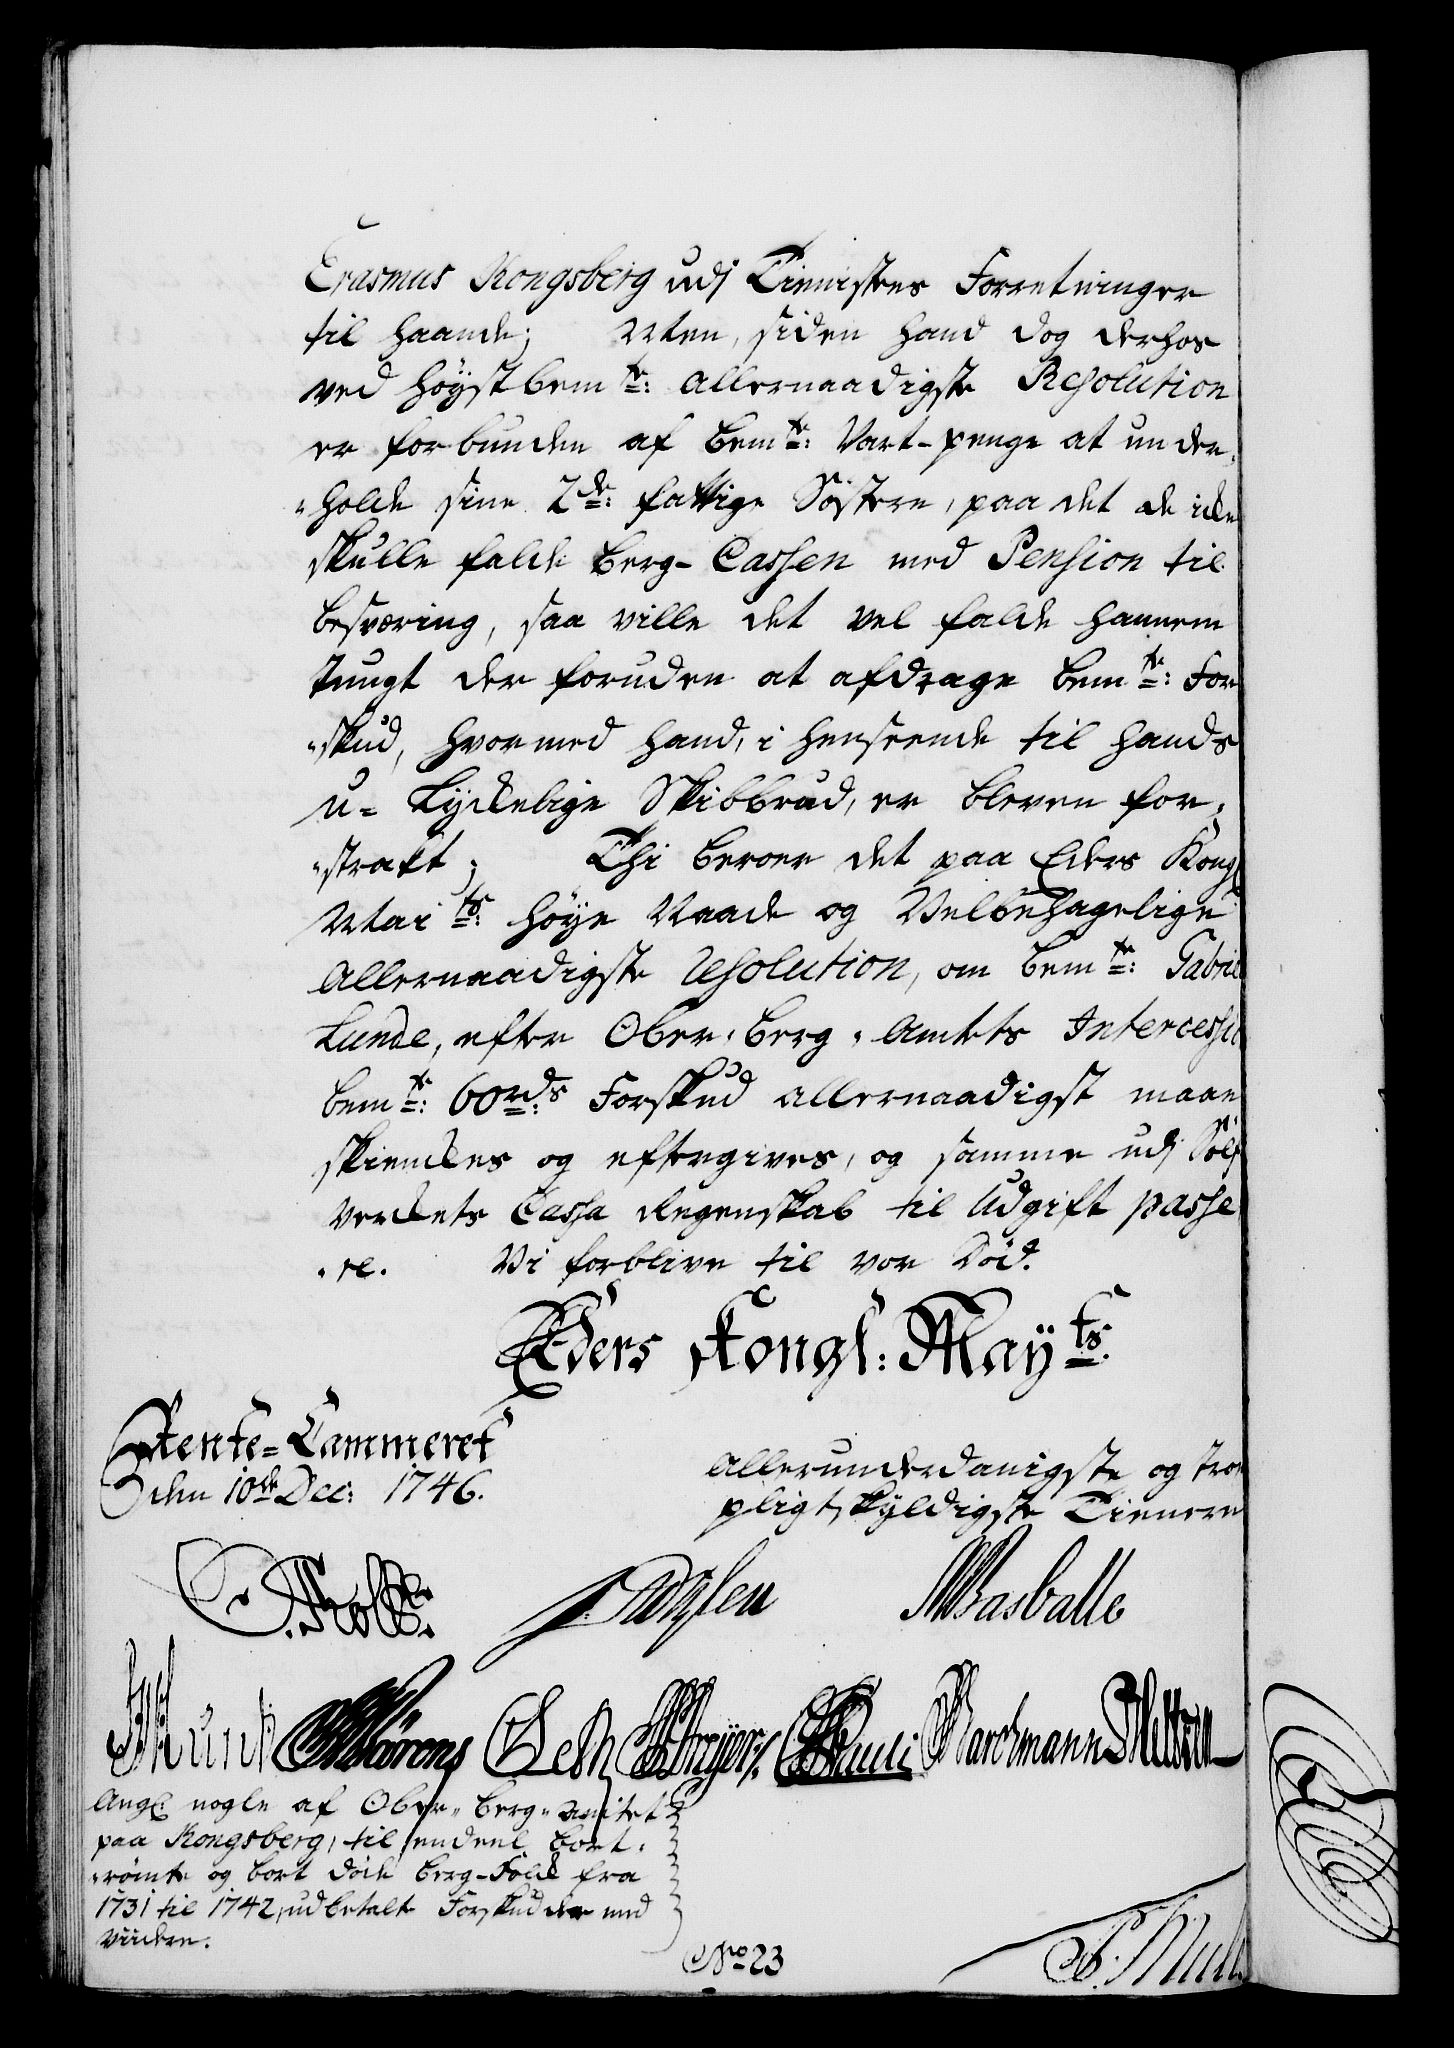 Erasmus Kongsberg udj Tienistens Forretninger
til haande; Men, siden hand dog derhos
ved høystbem.te: allernaadigste Resolution
er forbunden af bem.te: Vart-penge at under-
"holde sine 2de: fattige Søstere, paa det de icke
skulle falde berg-Cassen med Pension til
besværing, saa ville det vel falde hannem
tungt der foruden at afdrage bem.te: For
"skud, hvormed hand, i henseende til hands
u-lyckelige Skibbrud, er bleven for-
"strakt; Thi beroer det paa Eders Kongl
Mai.ts: høye Naade og Velbehagelige
Allernaadigste Resolution, om bem.te: Gabriel
Lunde, efter Ober-berg-Amtets Intercession
bem.te: 60 rd.s Forskud allernaadigst maae
skienckes og eftergives, og samme udj Sølf
verckets Cassa Regenskab til Udgift passe
"re. Vi forblive til vor Död.
Eders Kongl: May.ts:
Rente-Cammeret
den 10de Dec: 1746.
allerunderdanigste og troe
pligtskyldigste Tienere
Rasballe
Munk
Pauli
Ang: nogle af Ober-berg-Amtet
paa Kongsberg, til endeel bort-
"römte og bort döde berg-Folck fra
1731 til 1742, udbetalte Forskudder med
viidere.
No 23